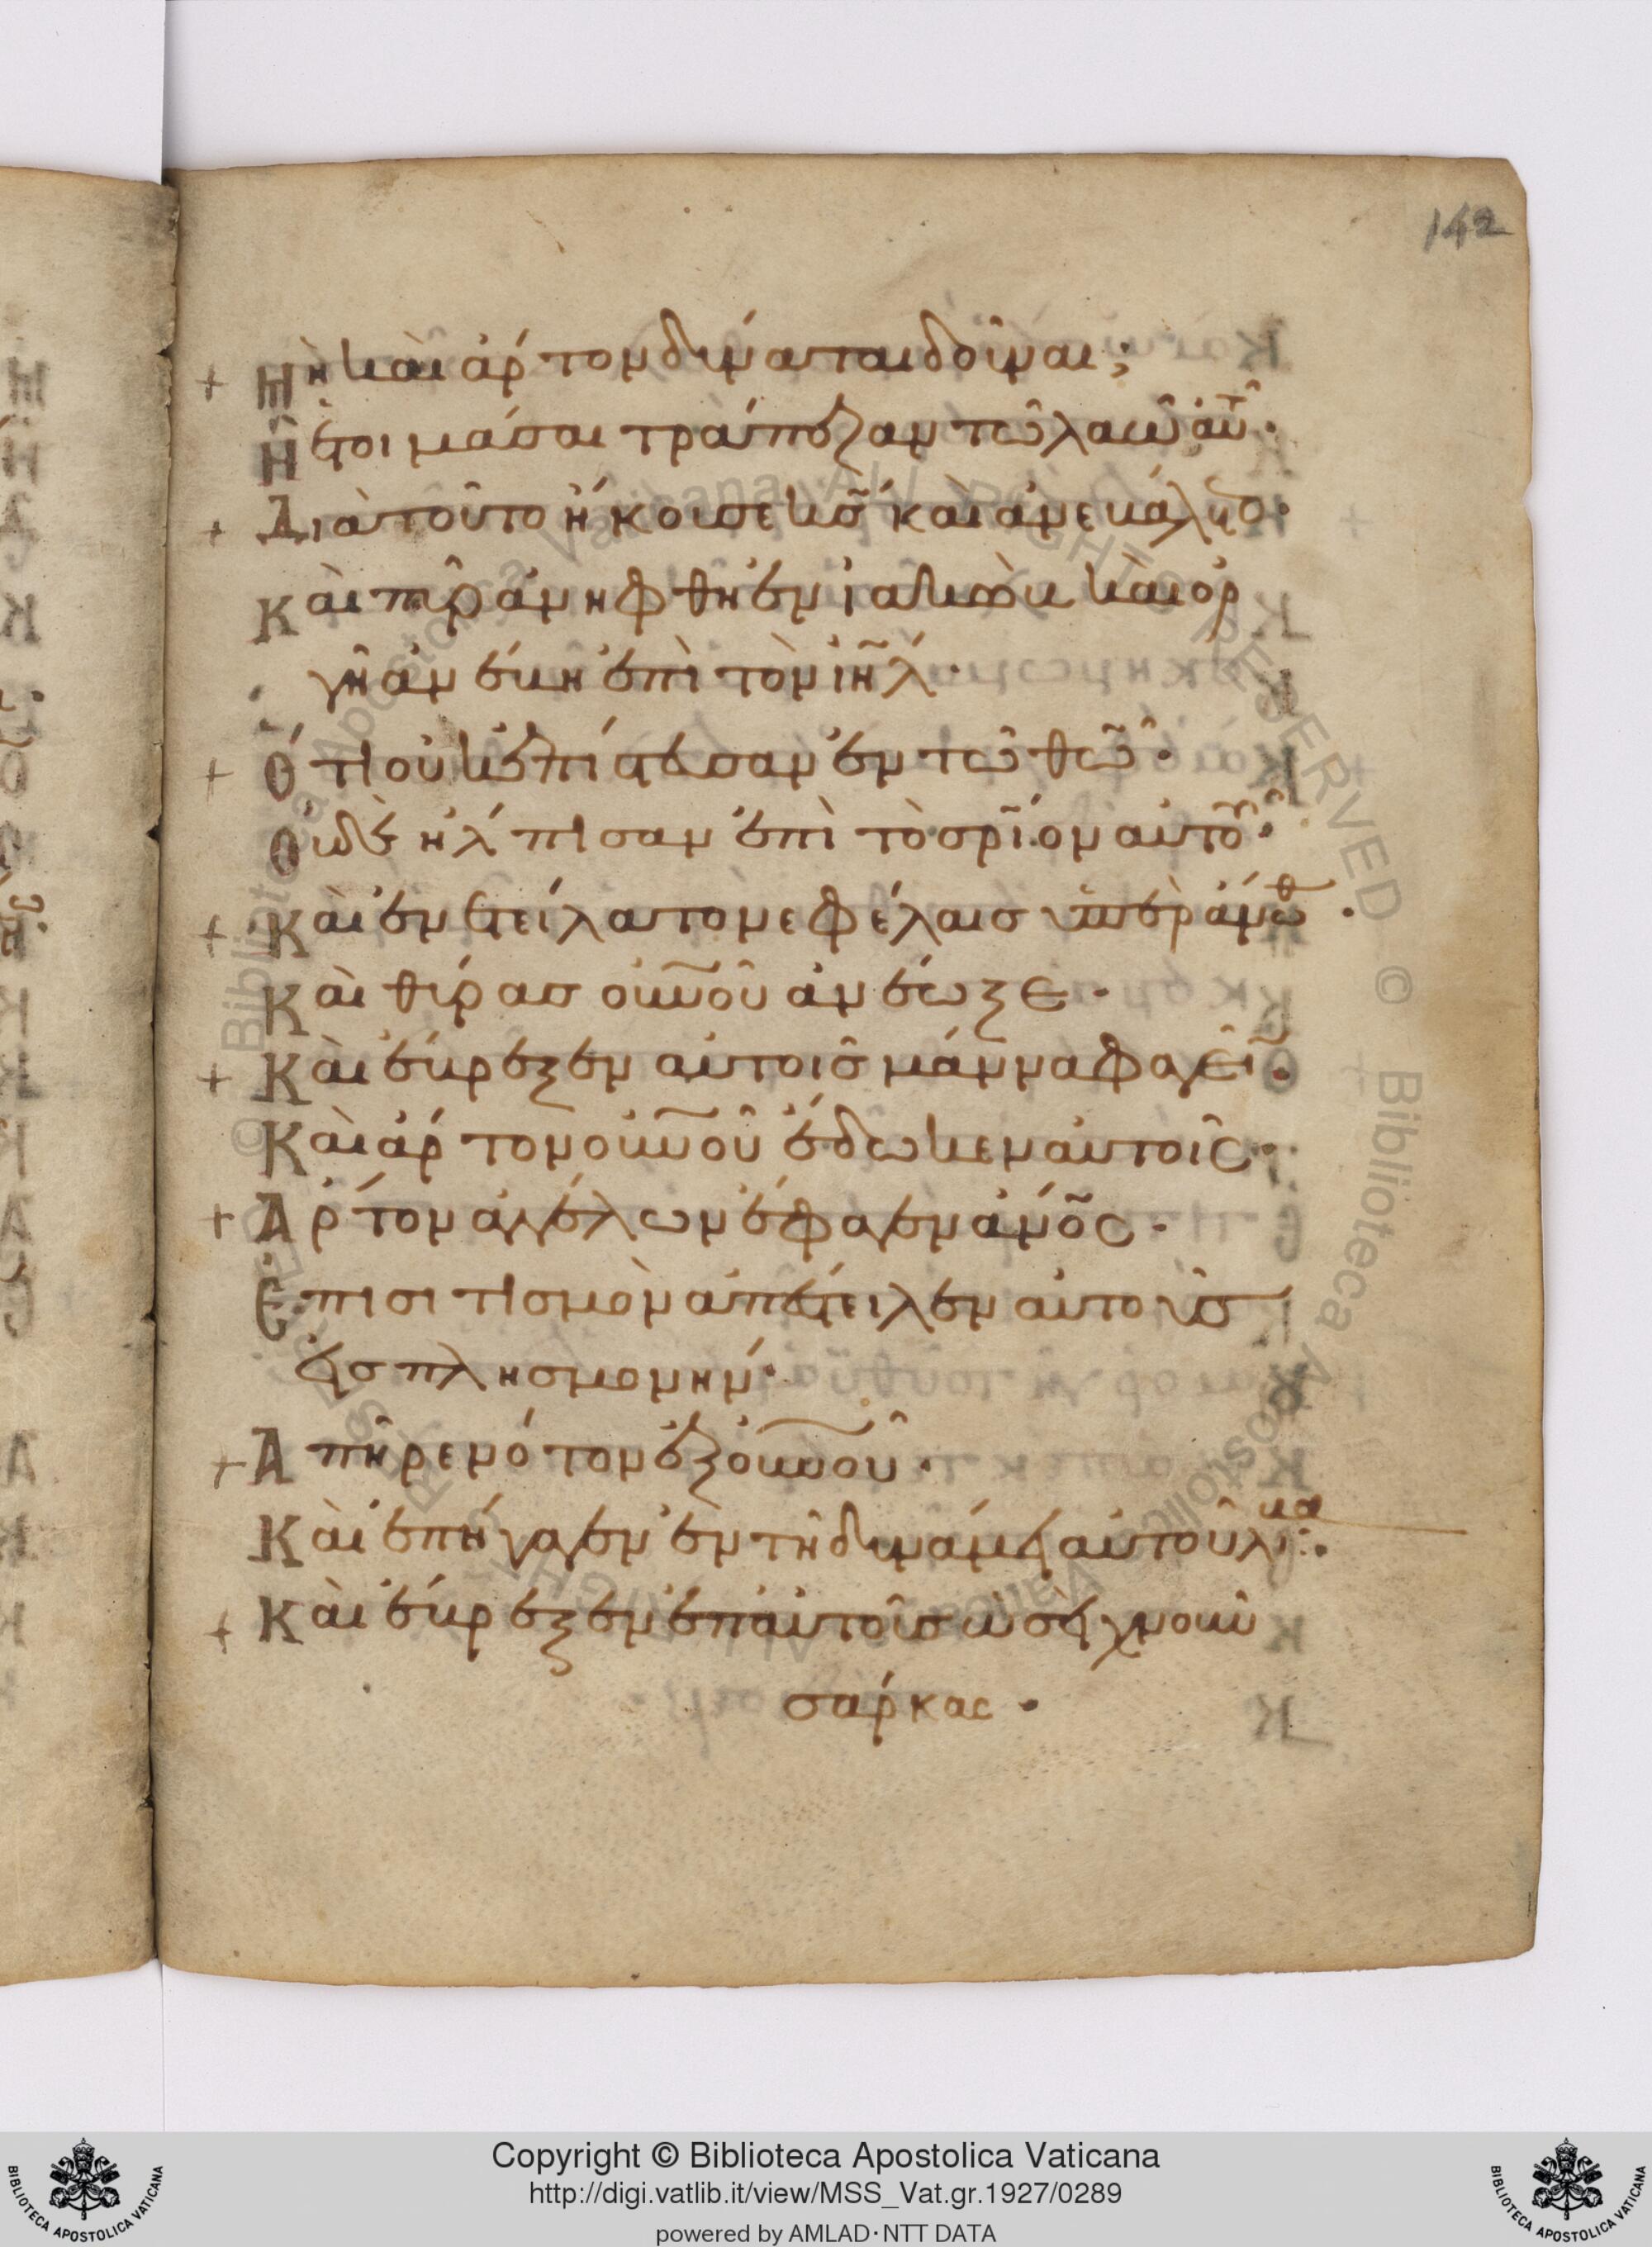 142
+ Μὴ καὶ ἄρτον δύναται δοῦναι;
Ἢ ἑτοιμάσαι τράπεζαν τῶ λαῶ αὐτοῦ·
+ Διὰ τοῦτο ἤκουσε κσ̃ καὶ ἀνεβάλετο·
Καὶ πῦρ ἀνήφθη ἐν ϊακὼβ καὶ ὀρ
γὴ ἀνέβη ἐπὶ τὸν ιη̃λ·
+ Ὅτι οὐκ ἐπίστευσαν ἐν τῶ θω̃·
Οὐδὲ ἤλπισαν ἐπὶ τὸ σρι̃ον αὐτοῦ·
+ Καὶ ἐνετείλατο νεφέλαισ ὑπεράνωθ·
Καὶ θύρασ οὐνοῦ ἀνέωξε·
+ Καὶ ἔβρεξεν αὐτοῖσ μάννα φαγεῖν·
Καὶ ἄρτον οὐνοῦ ἔδωκεν αὐτοῖς·
+ Ἄρτον ἀγγέλων ἔφαγεν ἄνος·
Ἐπισιτισμὸν ἀπέστειλεν αὐτοῖσ
εἰσ πλησμονήν·
+ Ἀπῆρε νότον ἐξ οὐνοῦ·
Καὶ ἐπήγαγεν ἐν τῆ δυνάμει αὐτοῦ λίβα·
+ Καὶ ἔβρεξεν ἐπ αὐτοὺσ ὡσεὶ χνοῦν
σάρκας·
Copyright © Biblioteca Apostolica Vaticana
http://digi.vatlib.it/view/MSS_Vat.gr.1927/0289
powered by AMLAD·NTT DATA